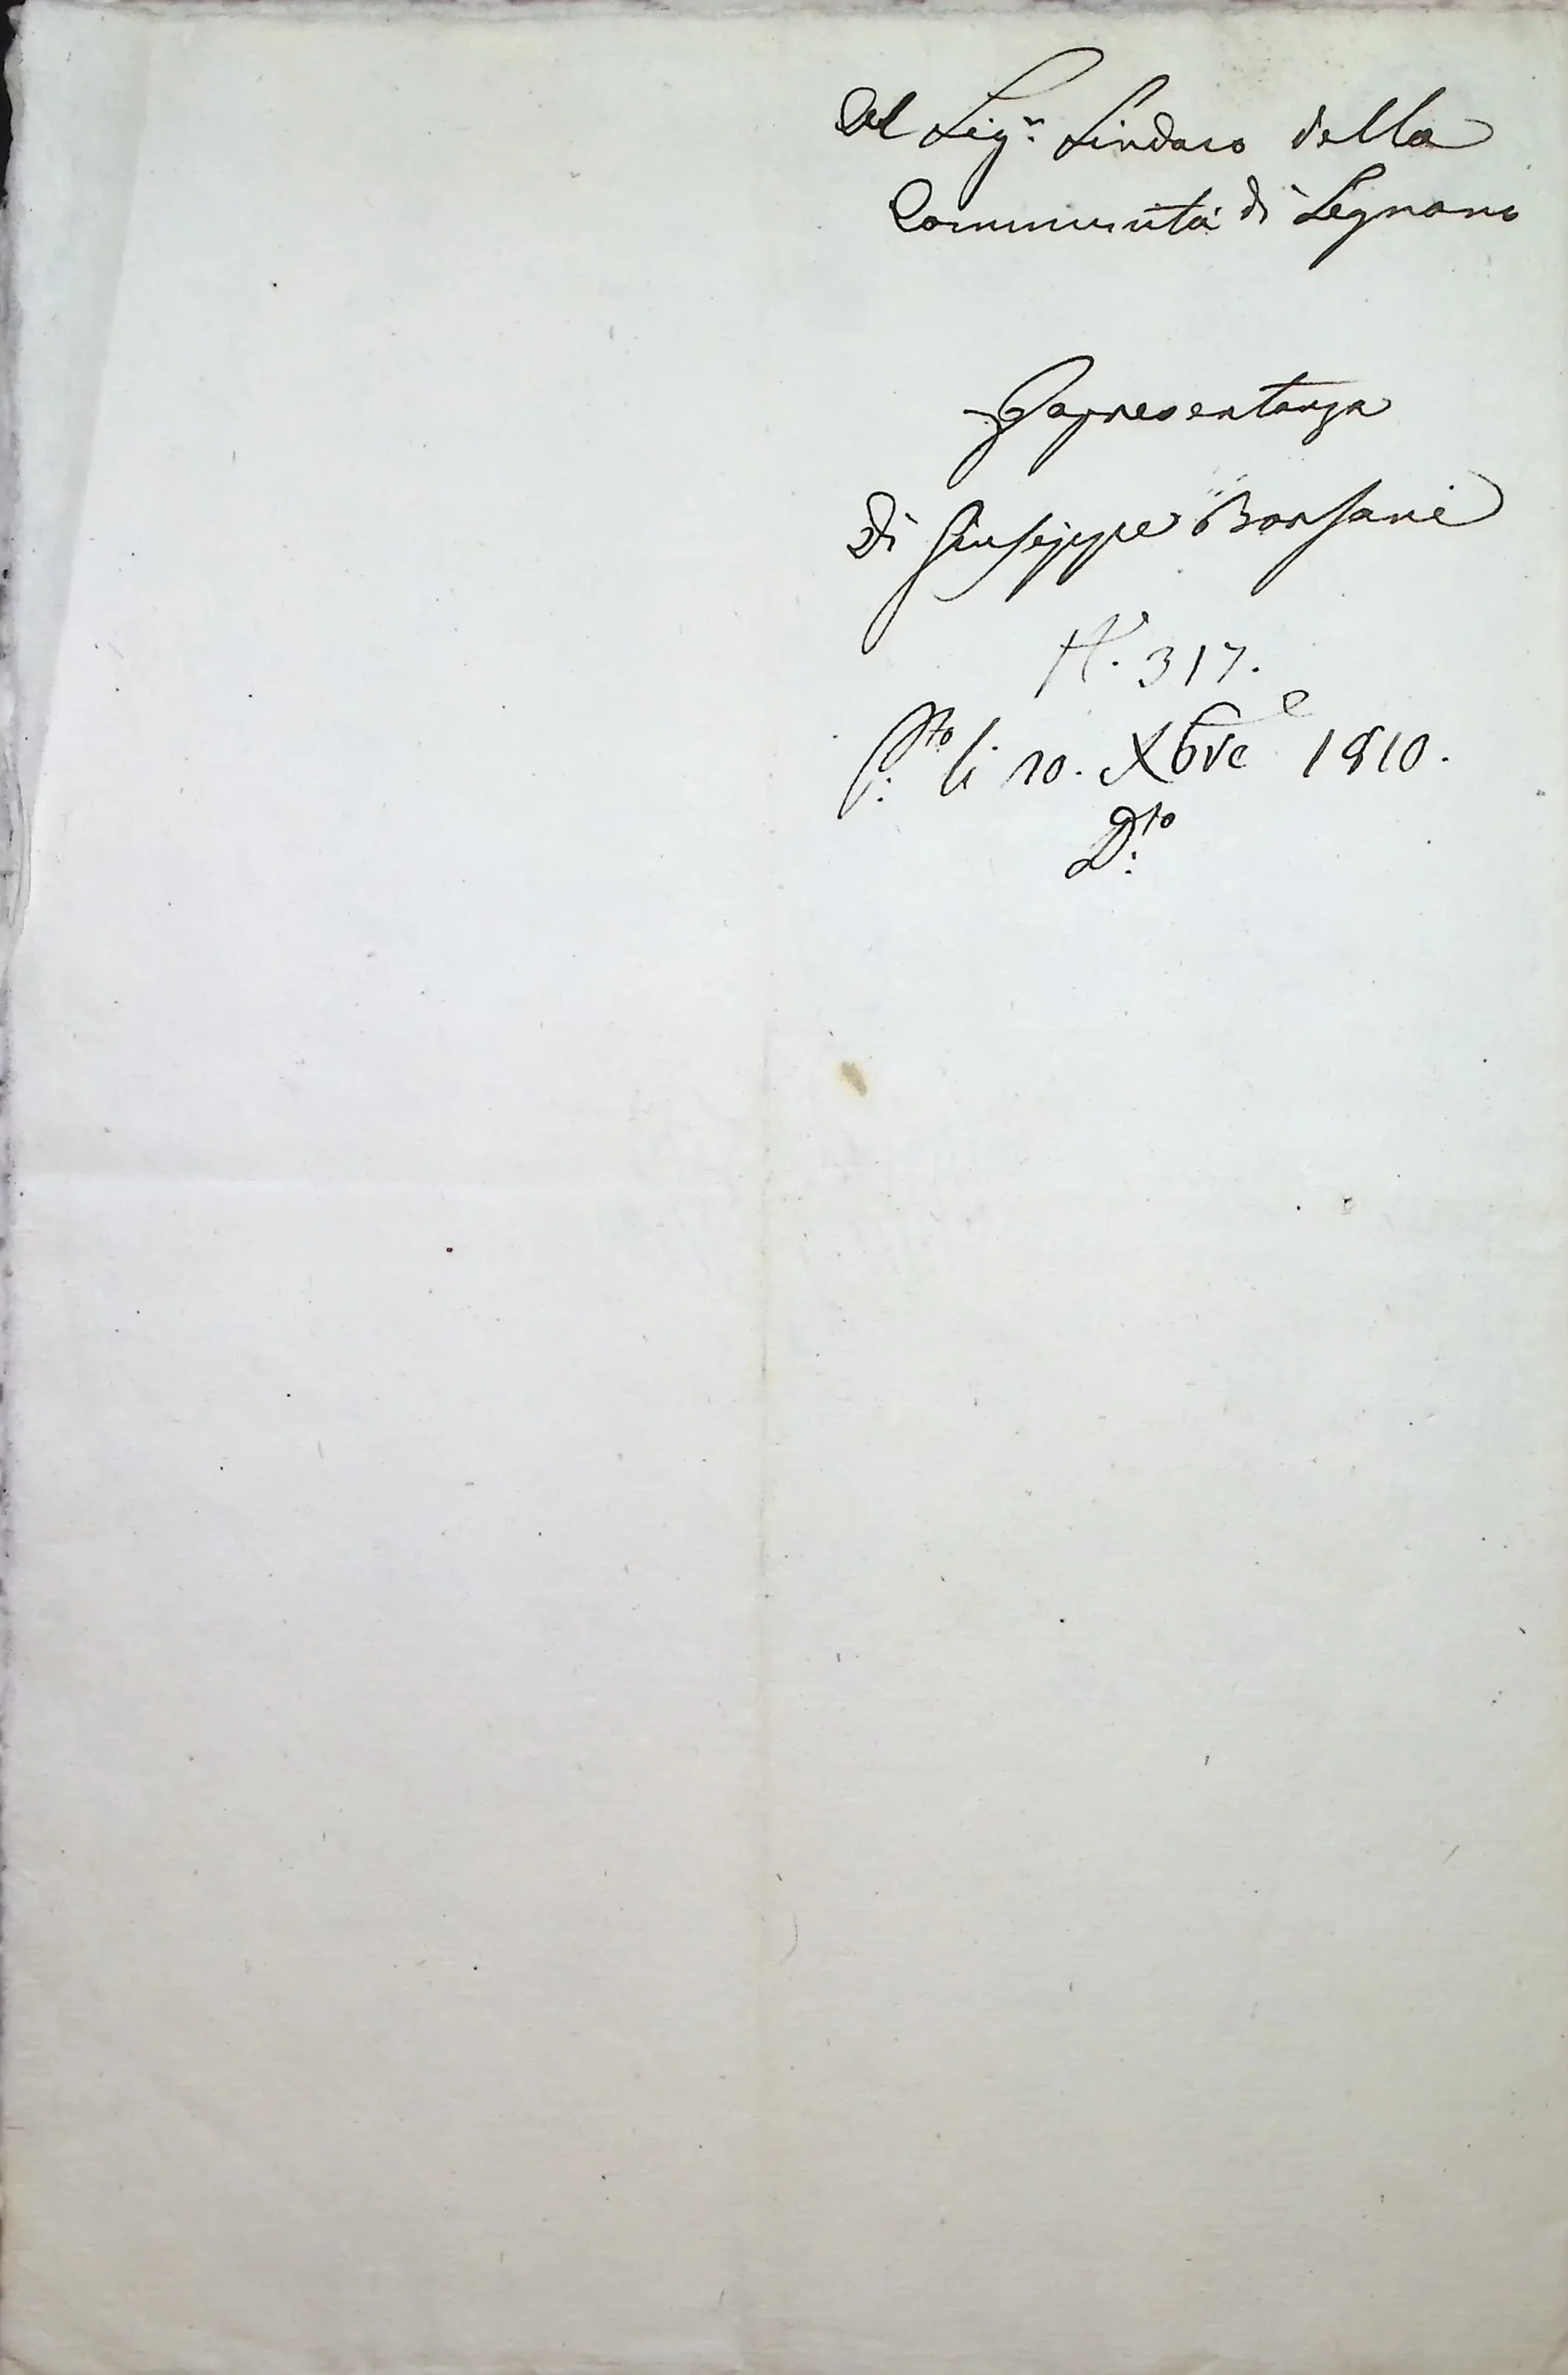 Al Sig.r Sindaco della
Communità di Legnano
Rapresentanza
Di Giuseppe Borsani
N. 317.
P.to li 10. Xbre 1810.
D.to